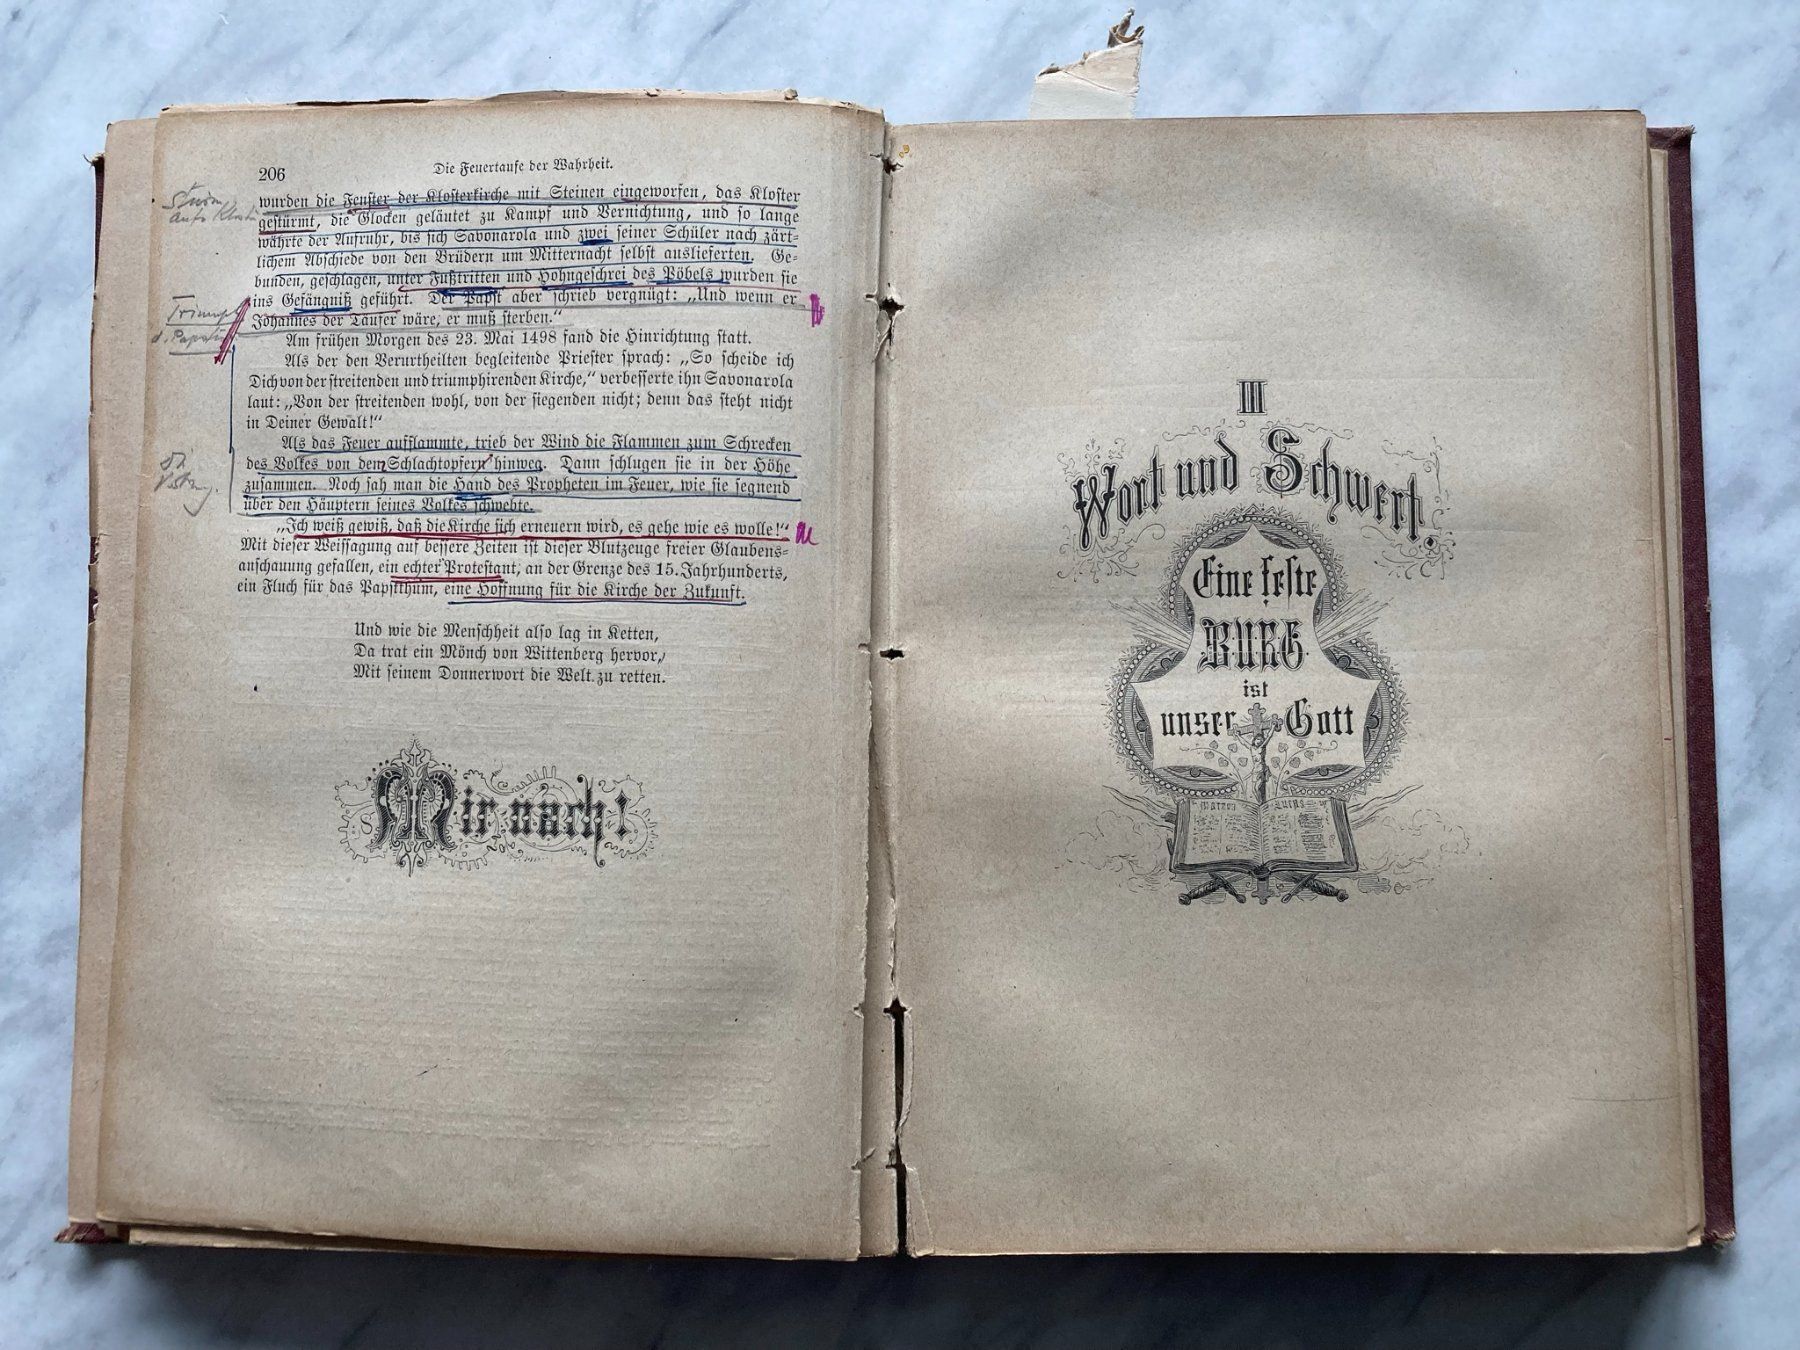 206
Die Feuertaufe der Wahrheit.
wurden die Fenster der Klosterkirche mit Steinen eingeworfen, das Kloster
gestürmt, die Glocken geläutet zu Kampf und Vernichtung, und so lange
währte der Aufruhr, bis sich Savonarola und zwei seiner Schüler nach zärt-
lichem Abschiede von den Brüdern um Mitternacht selbst auslieferten. Ge-
bunden, geschlagen, unter Fußtritten und Hohngeschrei des Pöbels wurden sie
ins Gefängniß geführt. Der Papst aber schrieb vergnügt: „Und wenn er
Johannes der Täufer wäre, er muß sterben.“
Am frühen Morgen des 23. Mai 1498 fand die Hinrichtung statt.
Als der den Verurtheilten begleitende Priester sprach: „So scheide ich
Dich von der streitenden und triumphirenden Kirche,“ verbesserte ihn Savonarola
laut: „Von der streitenden wohl, von der siegenden nicht; denn das steht nicht
in Deiner Gewalt!“
Als das Feuer aufflammte, trieb der Wind die Flammen zum Schrecken
des Volkes von den Schlachtopfern hinweg. Dann schlugen sie in der Höhe
zusammen. Noch sah man die Hand des Propheten im Feuer, wie sie segnend
über den Häuptern seines Volkes schwebte.
„Ich weiß gewiß, daß die Kirche sich erneuern wird, es gehe wie es wolle!“
Mit dieser Weissagung auf bessere Zeiten ist dieser Blutzeuge freier Glaubens-
anschauung gefallen, ein echter Protestant, an der Grenze des 15. Jahrhunderts,
ein Fluch für das Papstthum, eine Hoffnung für die Kirche der Zukunft.
Und wie die Menschheit also lag in Ketten,
Da trat ein Mönch von Wittenberg hervor,
Mit seinem Donnerwort die Welt zu retten.
Mir nach!
Sturm
aufs
Triumph
III
Wort und Schwert.
Eine feste
BURG
ist
unser Gott